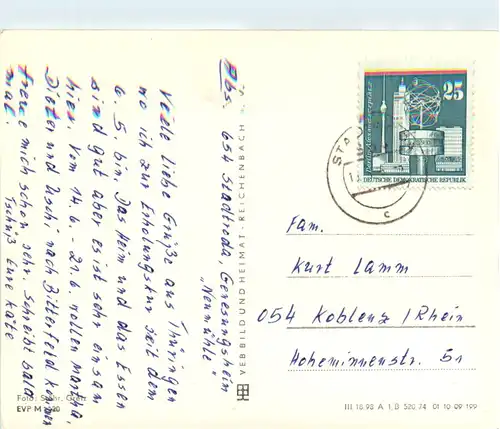 Abs. 654 Stadtroda, Genesungsheim
"Neumühle"
Viele liebe Grüße aus Thüringen
wo ich zur Erholungskur seit dem
6. 5 bin. Das Heim und das Essen
sind gut aber es ist sehr einsam
hier. Vom 14.6. - 21.6 wollen Martha,
Dieter und Uschi nach Bitterfeld kommen
freue mich schon sehr. Schreibt bald
mal.
Tschüß Eure Käte
Foto:
EVP M
VEB BILD UND HEIMAT · REICHENBACH i. V.
Berlin Alexanderplatz
25
DEUTSCHE DEMOKRATISCHE REPUBLIK
STAD
c
Fam.
Kurt Lamm
054 Koblenz / Rhein
Hoheminnenstr. 51
III 18 98 A 1, B 520 74 01 10 09 199